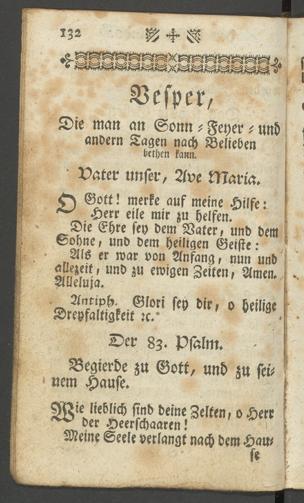 132
Vesper,
Die man an Sonn-Feyer-und
andern Tagen nach Belieben
bethen kann.
Vater unser, Ave Maria.
O Gott! merke auf meine Hilfe:
Herr eile mir zu helfen.
Die Ehre sey dem Vater, und dem
Sohne, und dem heiligen Geiste:
Als er war von Anfang, nun und
allezeit, und zu ewigen Zeiten, Amen.
Alleluja.
Antiph. Glori sey dir, o heilige
Dreyfaltigkeit ꝛc.
Der 83. Psalm.
Begierde zu Gott, und zu sei-
nem Hause.
Wie lieblich sind deine Zelten, o Herr
der Heerschaaren!
Meine Seele verlangt nach dem Hau-
se